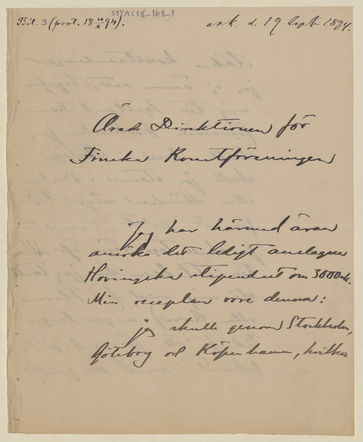 STyAC18-168-1
Bil. 3 (prot. 18 10/X 94).
ank. d. 19 Sept. 1894.
Ärade Direktionen för
Finska Konstföreningen
Jag har härmed äran
ansöka det ledigt anslagna
Hovingska stipendiet om 3000 mk.
Min reseplan vore denna:
jag skulle genom Stockholm,
Göteborg och Köpenhamn, hvilka